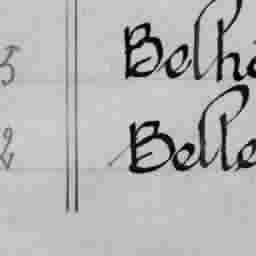 5 Belha
2 Belle